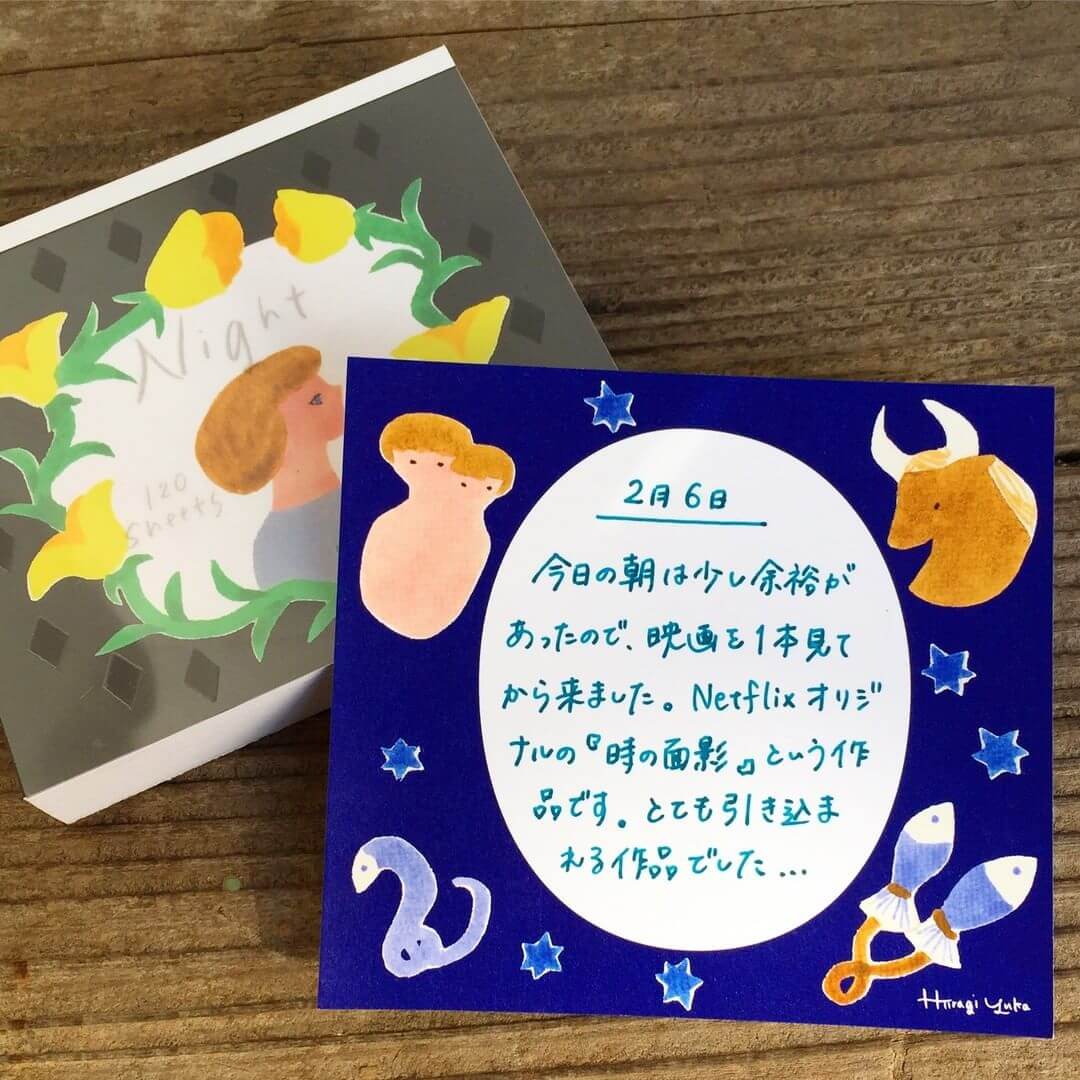 Night
120
Sheets
2月6日
今日の朝は少し余裕が
あったので、映画を1本見て
から来ました。Netflixオリジ
ナルの『時の面影』という作
品です。とても引き込ま
れる作品でした...
Hiiragi Yuka